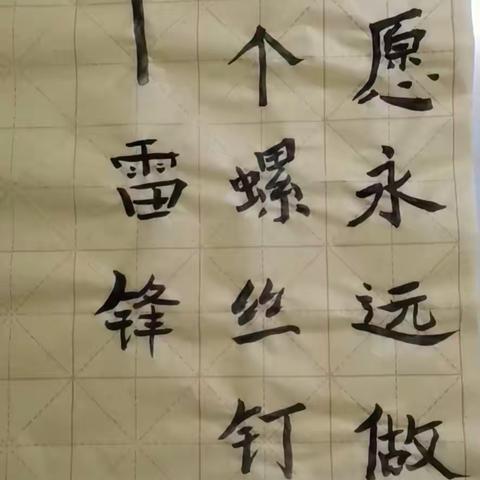 愿永远做
个螺丝钉
雷锋